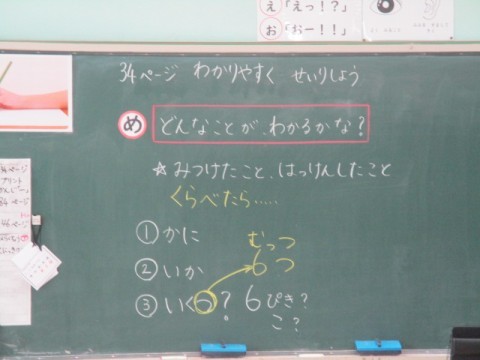 え「えっ！？」
お「おー！！」
34ページ わかりやすく せいりしよう
め どんなことが、わかるかな？
☆みつけたこと、はっけんしたこと
くらべたら.....
①かに
むっつ
②いか
6つ
③いくつ？ 6ぴき？
こ？